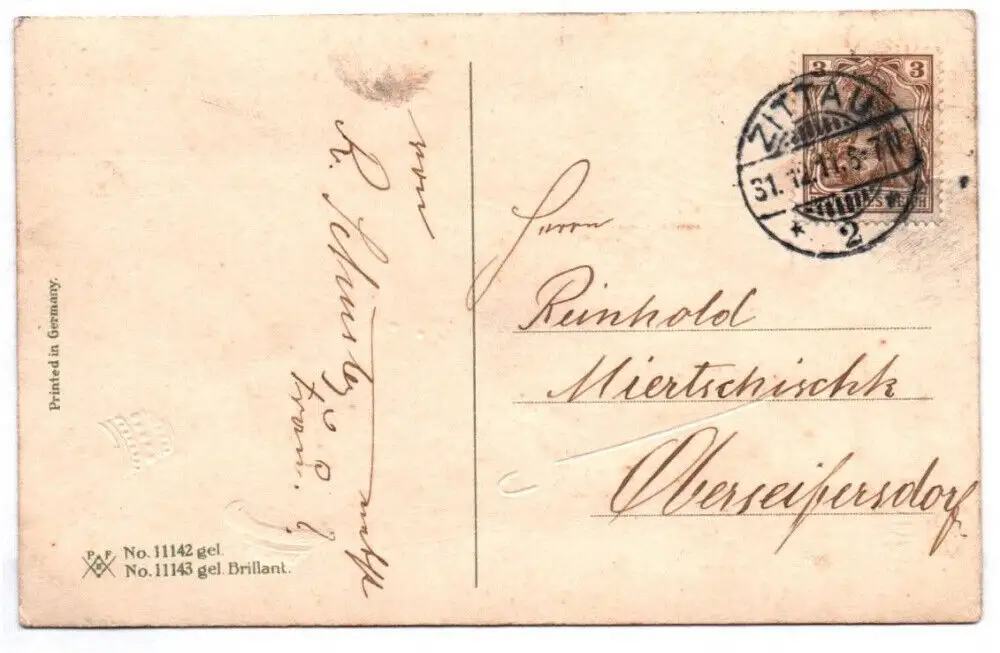 3 3
ZITTAU
31.12.11.5-7N
* 2 *
Herrn
Reinhold
Miertschischk
Oberseifersdorf
von
R. Schuster nebst
Printed in Germany.
P F
B
No. 11142 gel.
No. 11143 gel. Brillant.